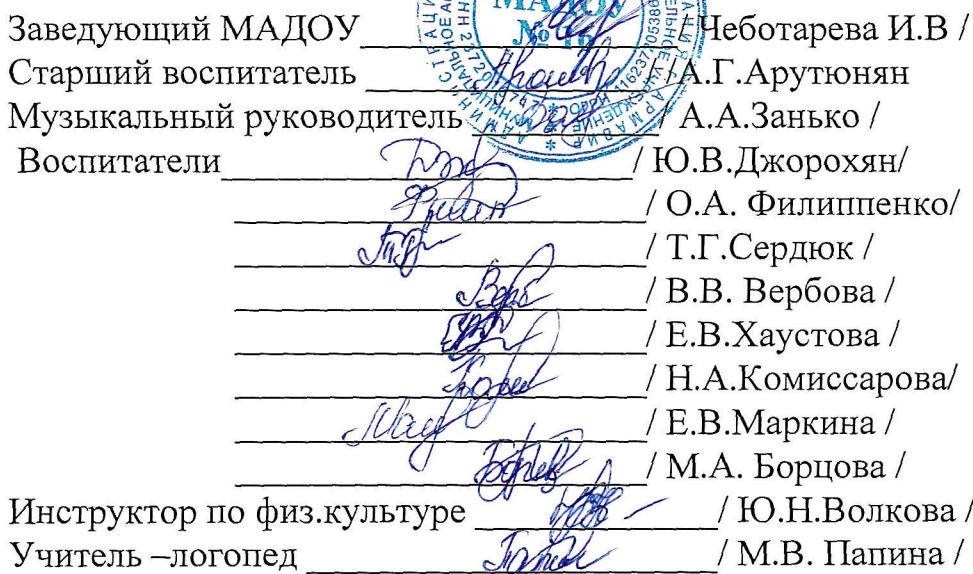 МАДОУ
Заведующий МАДОУ / Чеботарева И.В /
№
Старший воспитатель / А.Г.Арутюнян
Музыкальный руководитель / А.А.Занько /
Воспитатели / Ю.В.Джорохян/
/ О.А. Филиппенко/
/ Т.Г.Сердюк /
/ В.В. Вербова /
/ Е.В.Хаустова /
/ Н.А.Комиссарова/
/ Е.В.Маркина /
/ М.А. Борцова /
Инструктор по физ.культуре / Ю.Н.Волкова /
Учитель –логопед / М.В. Папина /